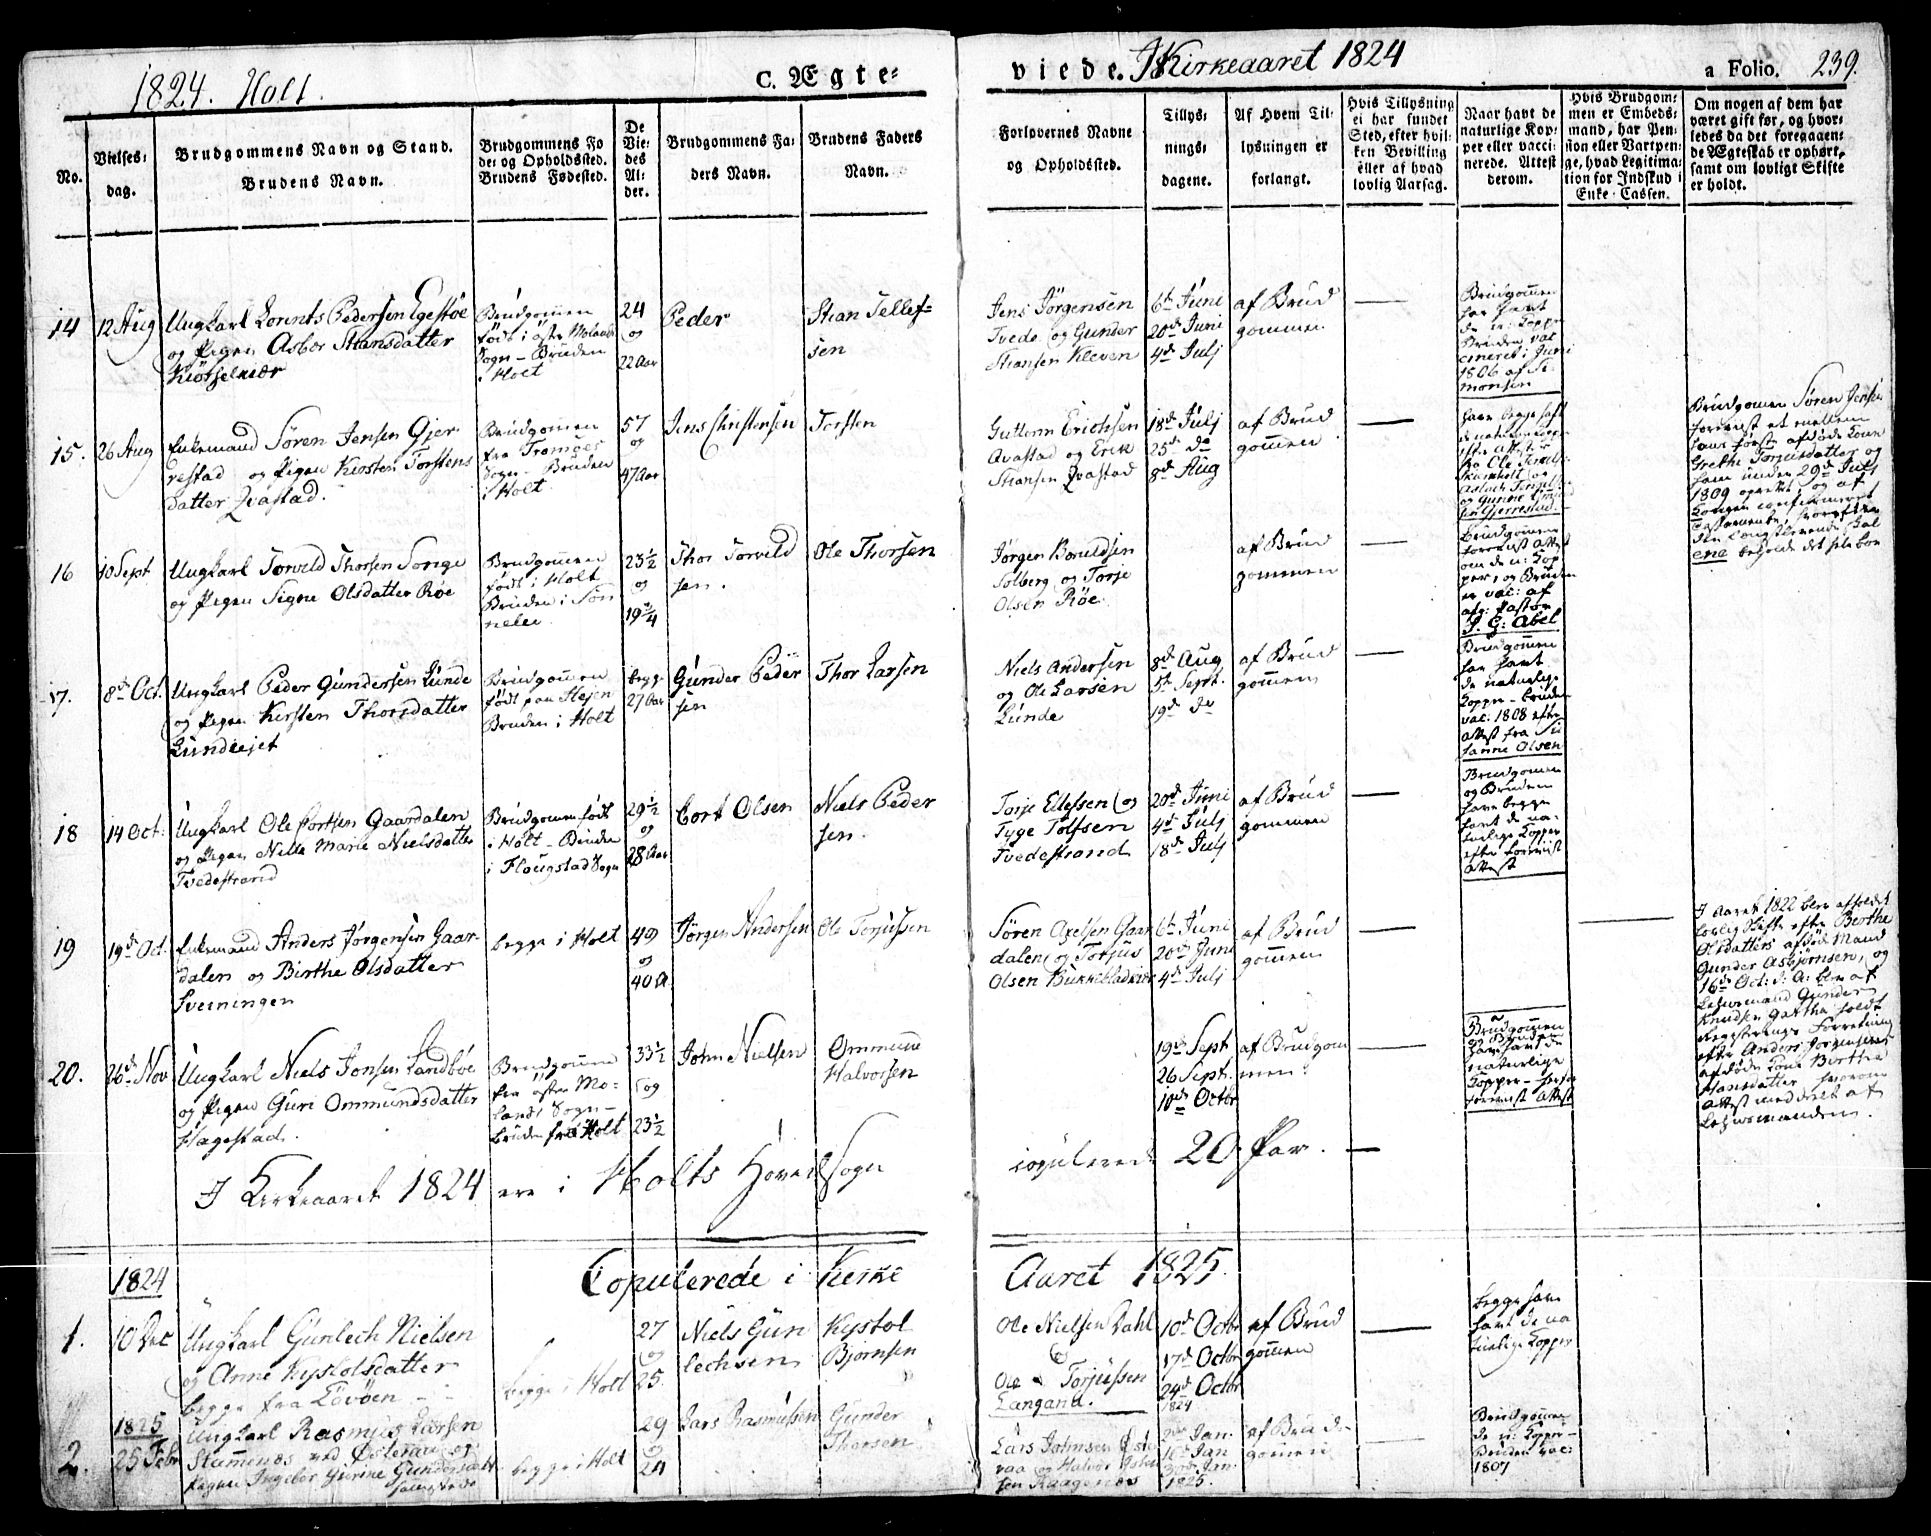 1824. Holt.
C. Ægte-
viede. I Kirkeaaret 1824
a Folio. 239.
No.
Vielses-
dag.
Brudgommens Navn og Stand.
Brudens Navn.
Brudgommens Fø
de- og Opholdssted.
Brudens Fødested.
De
Vie-
des
Al-
der.
Brudgommens Fa-
ders Navn.
Brudens Faders
Navn.
Forlovernes Navne
og Opholdssted.
Tillys-
nings-
dagene.
Af Hvem Til-
lysningen er
forlangt.
Hvis Tillysning
ei har fundet
Sted, efter hvil-
ken Bevilling
eller af hvad
lovlig Aarsag.
Naar havt de
naturlige Kop-
per eller vacci-
nerede. Attest
derom.
Hvis Brudgom-
men er Embeds-
mand, har Pen-
sion eller Vartpen-
ge, hvad Legitima-
tion for Indskud i
Enke-Cassen.
Om nogen af dem har
været gift før, og hvor-
ledes da det foregaaen-
de Ægteskab er ophørt,
samt om lovligt Skifte
er holdt.
14
12 Aug
Ungkarl Lorents Pedersen Egestøe
og Pigen Asbor Stiansdatter
Kiørselkiær
Brudgommen
født i øster Molands
Sogn - Bruden
i Holt
24
og
22 Aar
Peder
Stian Tellef-
sen
Jens Jørgensen
Tvede og Gunder
Stiansen Kleven
6te Juni
20de Juni
4de Julj
af Brud
gommen
Brudgommen
har havt
de n: Kopper
Bruden vac
cineret i Juni
1806 af Si-
monsen
15.
26 Aug
Enkemand Søren Jensen Gjer-
restad og Pigen Kirsten Torstens
datter Qvastad.
Brudgommen
fra Tromøes
Sogn - Bruden
i Holt.
57
og
47 Aar
Jens Christensen
Torsten
Guttorm Erichsen
Qvastad og Erik
Stiansen Qvastad
18de Julj
25de do
8de Aug
af Brud
gommen
have begge haft
de naturlige Kopper
efter Attest
fra Ole
og Gunne
Gjerrestad.
Brudgomen Søren Jensen
foreviist et mellem
ham først afdøde Kone
Grethe og
ham under 29de Julj
1809 oprettet og af
Kongen confirmeret
Testamente, hvorefter
den Længstlevende
ene beholde det hele boe
16
10 Sept
Ungkarl Torvild Thorsen Songe
og Pigen Signe Olsdatter Røe
Brudgommen
født i Holt
Bruden i Søn
neløv
23½
og
19¾
Thor Torvild
sen.
Ole Thorsen
Jørgen
Solberg og Torje
Olsen Røe.
af Brud
gommen
Brudgommen
foreviist Attest
om de n: Kop
per, og Bruden
er vac: af
afg: Pastor
J. G: Abel
17.
8de Oct.
Ungkarl Peder Gundersen Lunde
og Pigen Kirsten Thorsdatter
Lundeejet
Brudgommen
født paa
Bruden i Holt
begge
27 Aar
Gunder Peder
sen
Thor Larsen
Niels Andersen
og Ole Larsen
Lunde
8de Aug
5te Sept.
19de do
af Brud
gommen
Brudgommen
har havt
de naturlige
Kopper - bruden
vac: 1808 efter
attest fra Su
sanne Olsen
18
14 Oct:
Ungkarl Ole Cortsen Gaardalen
og Pigen Nille Marie Nielsdatter
Tvedestrand
Brudgommen født
i Holt - Bruden
i Flougstad Sogn
29½
og
28 Aar
Cort Olsen
Niels Peder
sen.
Torje Ellefsen og
Tyge Tolfsen
Tvedestrand
20de Juni
4de Julj
18de Julj
af Brud
gommen
Brudgommen
og Bruden
have begge
havt de na-
turlige Kopper
efter foreviist
Attest
19
19de Oct.
Enkemand Anders Jørgensen Gaar-
dalen og Birthe Olsdatter
Sveiningen
begge i Holt
49
og
40 A
Jørgen Andersen
Ole Torjussen
Søren Axelsen Gaar
dalen og Torjus
Olsen
6te Juni
20de Juni
4de Julj
af Brud
gommen
I Aaret 1822 blev afholdet
lovlig Skifte efter Birthe
Olsdatters afdøde Mand
Gunder Asbjørnsen, og
16de Oct: d: A: blev af
Lehnsmand Gunder
Knudsen Gartha holdt
Registerings Forretning
efter Anders Jørgensens
afdøde Kone Birthe
Hansdatter hvorom
Attest meddeelt af
Lehnsmanden.
20.
26de Nov
Ungkarl Niels Jonsen Landbøe
og Pigen Guri Ommundsdatter
Hagestad.
Brudgommen
fra øster Mo-
lands Sogn -
Bruden fra Holt
33½
og
23½
John Nielsen
Ommund
Halvorsen
19de Sept
26 Sept.
10de Octbr
af Brudgom
men.
Brudgommen
og Bruden
have havt de
naturlige
Kopper -
foreviist Attest
I Kirkeaaret 1824 ere i Holts Hoved Sogn
copulerede 20 Par. -
1824
Copulerede i Kirke
Aaret 1825
1.
10 Dec
Ungkarl Gunlech Nielsen
og Anne Kystolsdatter
begge fra Løvøen
begge i Holt
27
og
25.
Niels Gun
lechsen
Kystol
Bjørnsen
Ole Nielsen Dahl
og
Ole Torjussen
Langand.
10de Octbr
17de Octbr
24de Octbr
1824
af Brud
gommen
begge have
havt de na
turlige Kopper
1825
2.
25 Febr
Ungkarl Rasmus Larsen
Stammenæs ved Østeraae og
Pigen Ingebor Gundersdatter
begge i Holt
29
og
24
Lars Rasmussen
Gunder
Thorsen
Lars Johnsen Øste
raa og Halvor
sen
2den Jan.
16de Jan
30de Jan.
1825.
af Brud-
gommen
Brudgommen
de n: Kopper -
Bruden vac:
1807